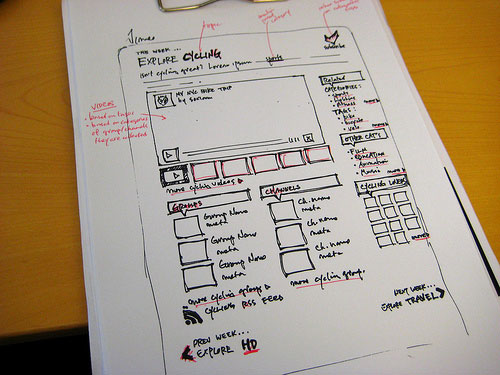 THE WEEK...
EXPLORE CYCLING
Isn't cycling great? Lorem ipsum
sports
subscribe
topic
VIDEOS
- based on topic
- based on categories
of group/channel
they are submitted
MY NYC BIKE TRIP
by
more cycling videos
Related
CATEGORIES:
- Sports
- Fitness
more
TAGS:
- bike
- bicycle
- velo
more
OTHER CAT'S
- FILM
- EDUCATION
- Animation
- Music
more
GROUPS
Group Name
meta
Group Name
meta
Group Name
meta
more cycling groups
CHANNELS
Ch. name
meta
Ch. name
meta
Ch. name
meta
more cycling group.
CYCLING
more
CYCLING RSS FEED
PREV WEEK...
EXPLORE HD
NEXT WEEK...
EXPLORE TRAVEL